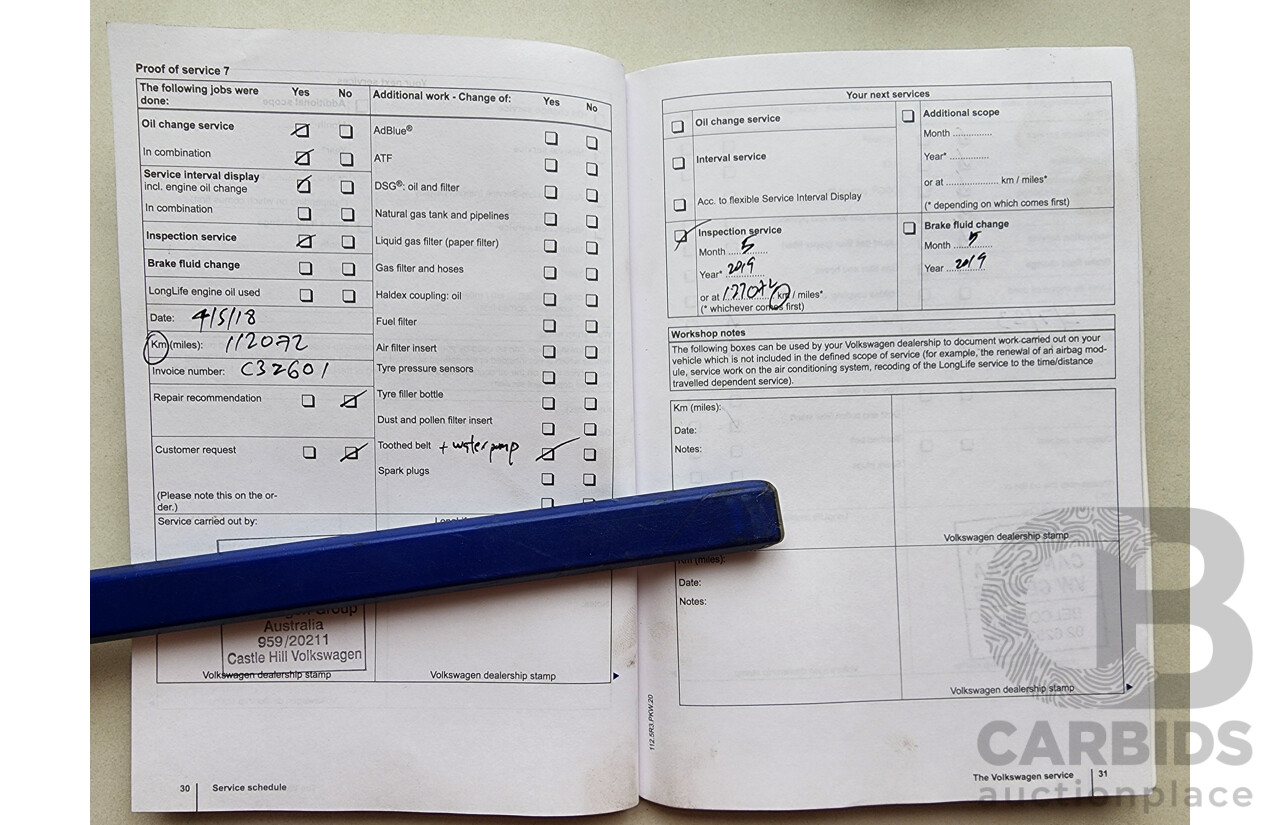 Proof of service 7
The following jobs were done: Yes No
Oil change service
In combination
Service interval display
incl. engine oil change
In combination
Inspection service
Brake fluid change
LongLife engine oil used
Date: 4/5/18
Km (miles): 112072
Invoice number: C32601
Repair recommendation
Customer request
(Please note this on the or-
der.)
Service carried out by:
Group
Australia
959/20211
Castle Hill Volkswagen
Volkswagen dealership stamp
Additional work - Change of: Yes No
AdBlue®
ATF
DSG®: oil and filter
Natural gas tank and pipelines
Liquid gas filter (paper filter)
Gas filter and hoses
Haldex coupling: oil
Fuel filter
Air filter insert
Tyre pressure sensors
Tyre filler bottle
Dust and pollen filter insert
Toothed belt + water pump
Spark plugs
Volkswagen dealership stamp
30 Service schedule
Your next services
Oil change service
Interval service
Acc. to flexible Service Interval Display
Inspection service
Month 5
Year* 2019
or at 127072 km / miles*
(* whichever comes first)
Additional scope
Month ..............
Year* ..............
or at ................... km / miles*
(* depending on which comes first)
Brake fluid change
Month 5
Year 2019
Workshop notes
The following boxes can be used by your Volkswagen dealership to document work carried out on your
vehicle which is not included in the defined scope of service (for example, the renewal of an airbag mod-
ule, service work on the air conditioning system, recoding of the LongLife service to the time/distance
travelled dependent service).
Km (miles):
Date:
Notes:
Volkswagen dealership stamp
Km (miles):
Date:
Notes:
Volkswagen dealership stamp
112.5R3.PKW.20
The Volkswagen service 31
CB
CARBIDS
auctionplace